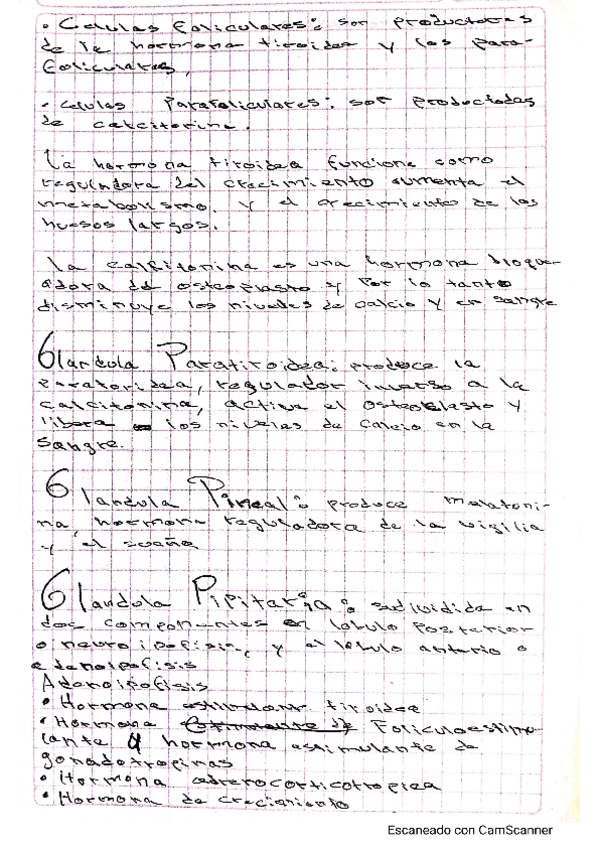 • Celulas Foliculares: son productoras
de la hormona tiroidea y los para-
foliculares,
• celulas Parafoliculares: son productodas
de calcitorina.
La hormona tiroidea funcione como
reguladora del crecimiento aumenta el
metabolismo. y el crecimiento de los
huesos largos.
La calsitonina es una hormona bloque-
adora de osteoplasto y por lo tanto
disminuye los niveles de calcio y en sangre
Glandula Paratiroidea: produce la
paratoridea, regulador inverso a la
calcitonina, activa el osteoblasto y
libera los niveles de calcio en la
sangre.
Glandula Pineal: produce melatoni-
na hormona reguladora de la vigilia
y el sueño
Glandula Pipitaria: subdividida en
dos componentes en lobulo Posterior
o neuroipofisis, y el lobulo anterio o
adenoipofisis
Adenoipofisis
• Hormona estimulant tiroidea
• Hormona Estimulante de Foliculoestimu-
lante y hormona estimulante de
gonadotropinas
• Hormona adrerocorticotropica
• Hormona de crecimiento
Escaneado con CamScanner